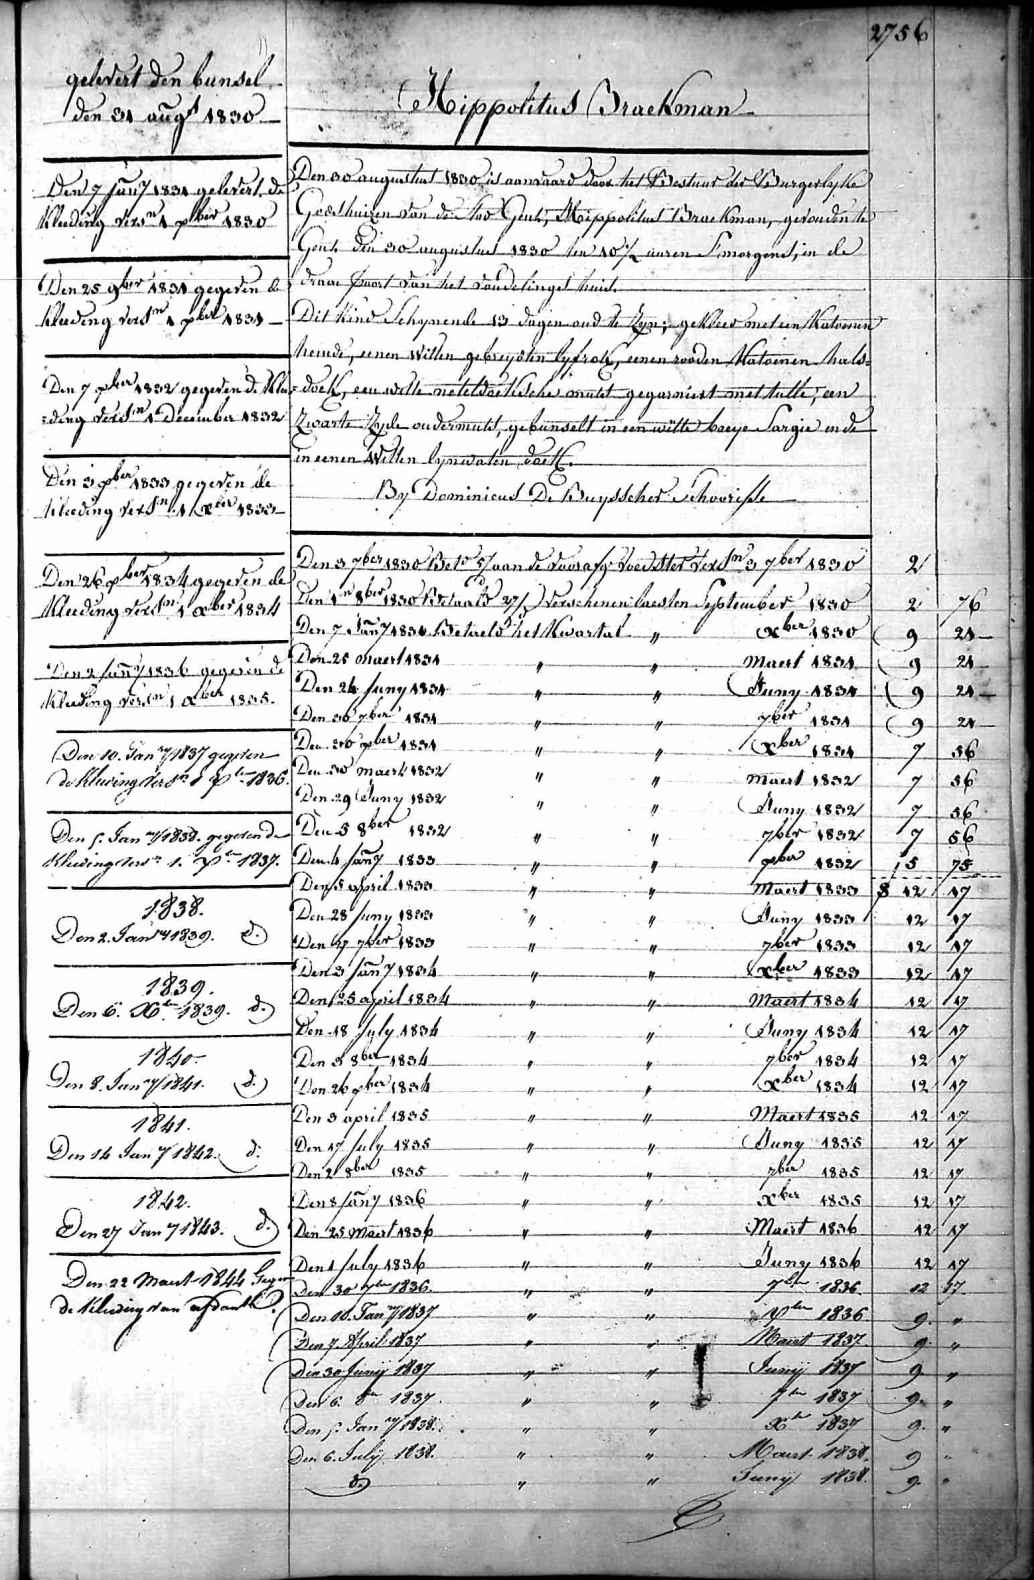 2756
gelevert den bunsel
den 31 augt 1830
Hippolitus Braekman
Den 7 Jany 1831 gelevert de
kleeding versn 1 xber 1830
Den 25 9ber 1831 gegeven de
kleeding versn 1 xber 1831
Den 7 xber 1832 gegeven de klee
=ding versn 1 December 1832
Den 3 xber 1833 gegeven de
kleeding versn 1 xber 1833
Den 26 xber 1834 gegeven de
kleeding versn 1 xber 1834
Den 2 Jany 1836 gegeven de
kleeding versn 1 xber 1835.
Den 10. Jany 1837 gegeven
de kleeding versn 1 xber 1836.
Den 5. Jany 1838. gegeven de
kleeding versn 1. xber 1837.
1838.
Den 2. Jany 1839. d.
1839.
Den 6. Xber 1839. d.
1840.
Den 8. Jany 1841. d.
1841.
Den 14 Jany 1842. d.
1842.
Den 27 Jany 1843. d.
Den 22 Maert 1844 Gegev
de kleeding van afdank.
Den 30 augustus 1830 is aanvaard door het Bestuur der Burgerlyke
Godshuizen van de Stad Gent, Hippolitus Braekman, gevonden te
Gent den 30 augustus 1830 ten 10 1/2 uuren s'morgens, in de
draai poort van het vondelingshuis.
Dit Kind Schynende 13 dagen oud te Zyn; gekleed met een Katoenen
hemde, eenen witten gebreyden lyfrok, eenen rooden Katoenen hals=
=doek, een witte neteldoeksche muts gegarniert met tulle, een
Zwarte Zyde oudermuts, gebunselt in een witte baeye Sargie ende
in eenen Witten lynwaten doek.
By Dominicus De Buysscher Schoorisse
Den 3 7ber 1830 Bet° 5/ aan de voorafg. voedster versn 3 7ber 1830 2
Den 1n 8ber 1830 Betaald 27/ d verschenen laesten September 1830 2 76
Den 7 Jany 1831 Betaeld het Kwartal " xber 1830 9 21
Den 25 maert 1831 " " Maert 1831 9 21
Den 24 Juny 1831 " " Juny 1831 9 21
Den 30 7ber 1831 " " 7ber 1831 9 21
Den 30 xber 1831 " " xber 1831 7 56
Den 30 maert 1832 " " Maert 1832 7 56
Den 29 Juny 1832 " " Juny 1832 7 56
Den 5 8ber 1832 " " 7ber 1832 7 56
Den 4 Jany 1833 " " xber 1832 15 75
Den 5 april 1833 " " Maert 1833 8 12 17
Den 28 Juny 1833 " " Juny 1833 12 17
Den 27 7ber 1833 " " 7ber 1833 12 17
Den 3 Jany 1834 " " xber 1833 12 17
Den 25 april 1834 " " Maert 1834 12 17
Den 18 July 1834 " " Juny 1834 12 17
Den 3 8ber 1834 " " 7ber 1834 12 17
Den 26 xber 1834 " " xber 1834 12 17
Den 3 april 1835 " " Maert 1835 12 17
Den 17 July 1835 " " Juny 1835 12 17
Den 2 8ber 1835 " " 7ber 1835 12 17
Den 8 Jany 1836 " " xber 1835 12 17
Den 25 Maert 1836 " " Maert 1836 12 17
Den 1 July 1836 " " Juny 1836 12 17
Den 30 7ber 1836. " " 7ber 1836 12 17
Den 10. Jany 1837 " " xber 1836 9. "
Den 7 April 1837 " " Maert 1837 9. "
Den 30 Junij 1837 " " Junij 1837 9 "
Den 6. 8er 1837. " " 7er 1837 9. "
Den 5. Jany 1838. " " Xer 1837 9. "
Den 6. Julij 1838. " " Maert 1838. 9 "
d. " " Junij 1838. 9. "